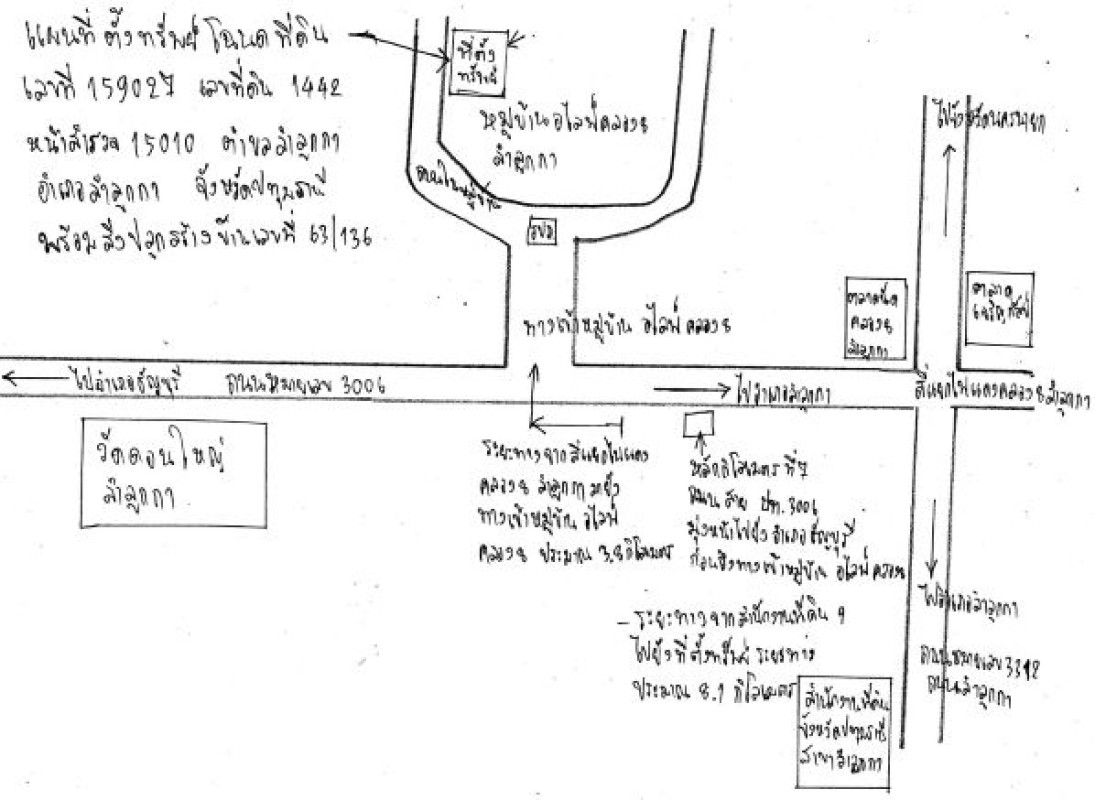 แผนที่ตั้งทรัพย์ โฉนดที่ดิน
เลขที่ 159027 เลขที่ดิน 1442
หน้าสำรวจ 15010 ตำบลลำลูกกา
อำเภอลำลูกกา จังหวัดปทุมธานี
พร้อมสิ่งปลูกสร้าง บ้านเลขที่ 63/136
ที่ตั้ง
ทรัพย์
หมู่บ้าน อไลฟ์คลอง 8
ลำลูกกา
ถนนในหมู่บ้าน
รปภ
ทางเข้าหมู่บ้าน อไลฟ์ คลอง 8
ไปจังหวัดนครนายก
ตลาดนัด
คลอง 8
ลำลูกกา
ตลาด
ไปอำเภอธัญบุรี ถนนหมายเลข 3006
ไปอำเภอลำลูกกา
สี่แยกไฟแดงคลอง 8 ลำลูกกา
วัดดอนใหญ่
ลำลูกกา
ระยะทางจากสี่แยกไฟแดง
คลอง 8 ลำลูกกา มายัง
ทางเข้าหมู่บ้าน อไลฟ์
คลอง 8 ประมาณ 3.8 กิโลเมตร
หลักกิโลเมตร ที่ 7
ถนน สาย ปท. 3006
มุ่งหน้าไปยัง อำเภอ ธัญบุรี
ก่อนถึงทางเข้าหมู่บ้าน อไลฟ์ คลอง 8
- ระยะทางจากสำนักงานที่ดิน ฯ
ไปยังที่ตั้งทรัพย์ ระยะทาง
ประมาณ 8.1 กิโลเมตร
ไปอำเภอลำลูกกา
ถนนหมายเลข 3312
ถนนลำลูกกา
สำนักงานที่ดิน
จังหวัดปทุมธานี
สาขาลำลูกกา